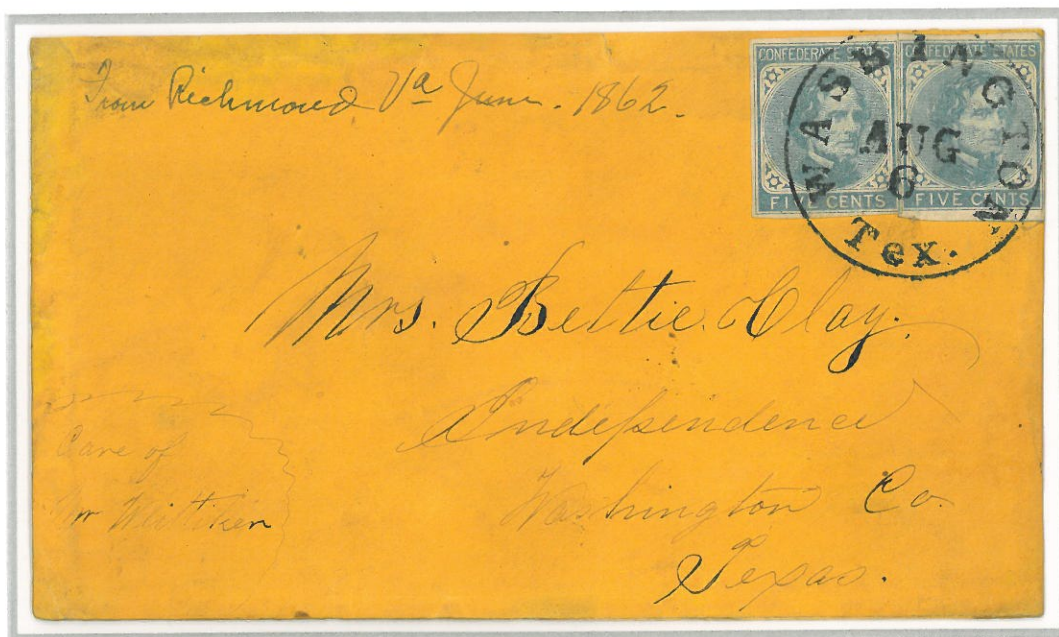 From Richmond Va June. 1862.
CONFEDERATE STATES
FIVE CENTS
CONFEDERATE STATES
FIVE CENTS
WASHINGTON
AUG
6
Tex.
Mrs. Bettie Clay.
Independence
Washington Co.
Texas.
Care of
Mr Millikin